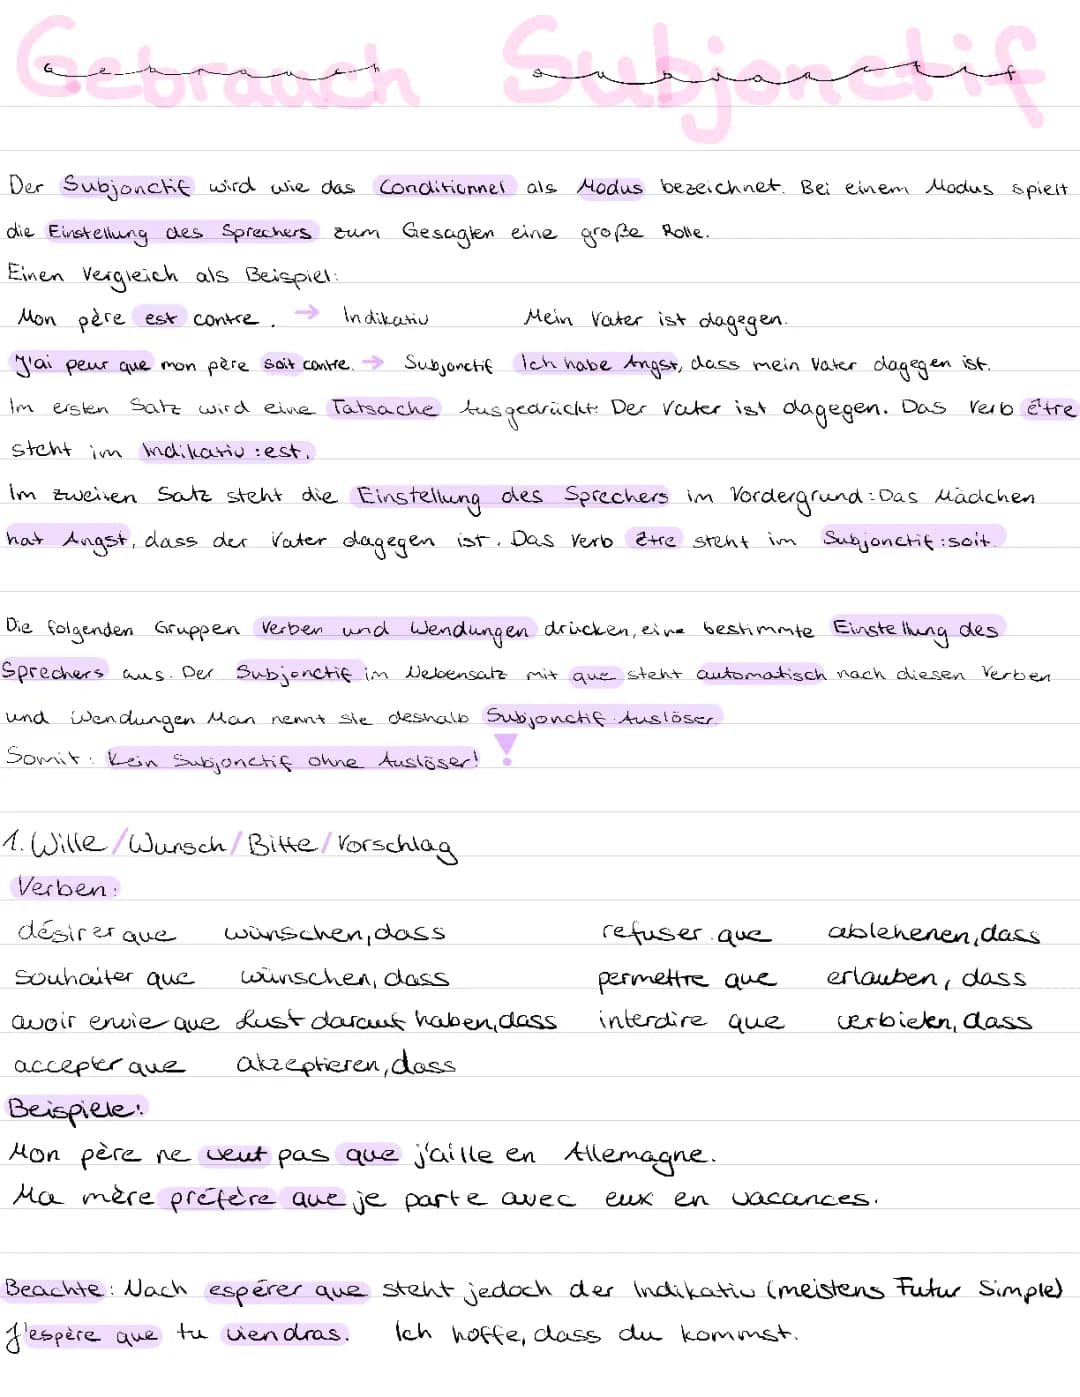 Gebrauch Subjonctif
Der Subjonctif wird wie das Conditionnel als Modus bezeichnet. Bei einem Modus spielt
die Einstellung des Sprechers zum Gesagten eine große Rolle.
Einen Vergleich als Beispiel:
Mon père est contre. → Indikativ Mein Vater ist dagegen.
J'ai peur que mon père soit contre. → Subjonctif Ich habe Angst, dass mein Vater dagegen ist.
Im ersten Satz wird eine Tatsache Ausgedrückt: Der Vater ist dagegen. Das Verb être
steht im Indikativ: est.
Im zweiten Satz steht die Einstellung des Sprechers im Vordergrund: Das Mädchen
hat Angst, dass der Vater dagegen ist. Das Verb être steht im Subjonctif: soit.
Die folgenden Gruppen Verben und Wendungen drücken, eine bestimmte Einstellung des
Sprechers aus. Der Subjonctif im Nebensatz mit que steht automatisch nach diesen Verben
und Wendungen Man nennt sie deshalb Subjonctif-Auslöser.
Somit: Kein Subjonctif ohne Auslöser! !
1. Wille/Wunsch/Bitte/Vorschlag
Verben:
désirer que wünschen, dass refuser que ablehenen, dass
souhaiter que wünschen, dass permettre que erlauben, dass
avoir envie que Lust darauf haben, dass interdire que verbieten, dass
accepter que akzeptieren, dass
Beispiele:
Mon père ne veut pas que j'aille en Allemagne.
Ma mère préfère que je parte avec eux en vacances.
Beachte: Nach espérer que steht jedoch der Indikativ (meistens Futur Simple)
J'espère que tu viendras. Ich hoffe, dass du kommst.